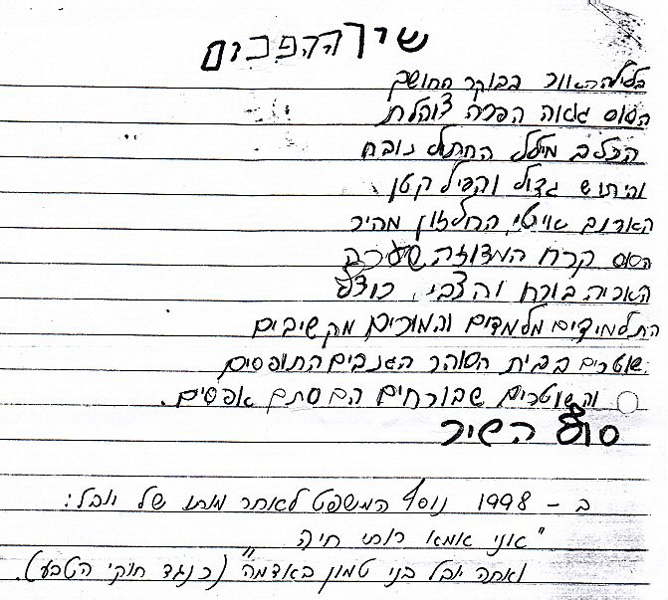 שיר ההפכים
בלילה האור בבוקר החושך
הסוס גאה הפרה צוהלת
הכלב מילל החתול נובח
והיתוש גדול והפיל קטן
הארנב איטי החלזון מהיר
הסוס קרח המדוזה שערה
האריה בורח והצבי כודע
התלמידים מלמדים והמורים מקשיבים
שוטרים בבית הסוהר הגנבים התופסים
והשוטרים שבורחים הם סתם אפסים.
סוף השיר
ב - 1998 נוסף המשפט לאחר מותו של יובל:
"אני אמא רותי חיה
ואתה יובל בני טמון באדמה" (כנגד חוקי הטבע).